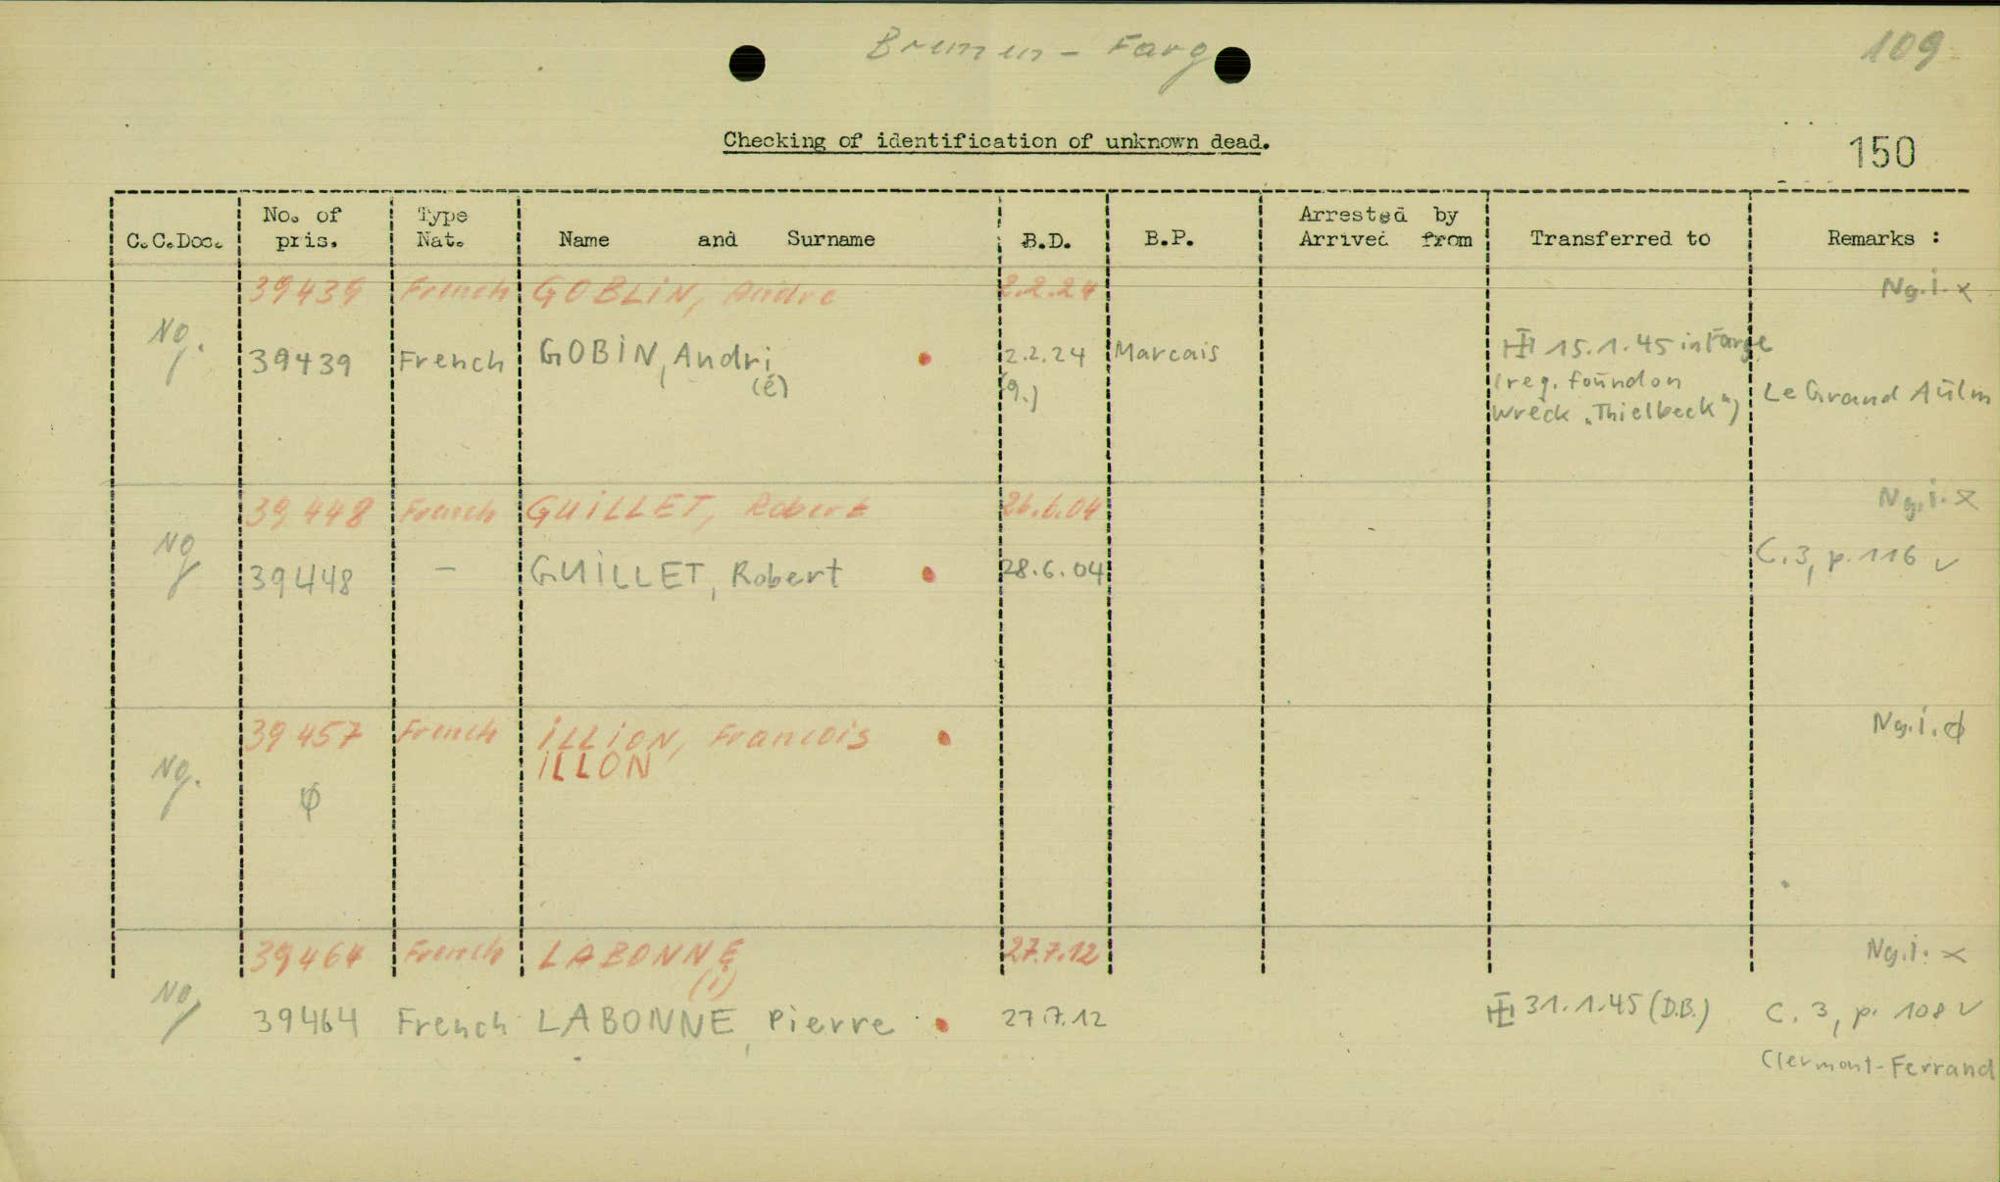 Bremen - Farg
109
Checking of identification of unknown dead.
150
C.C.Doc. No. of pris. Type Nat. Name and Surname B.D. B.P. Arrested by Arrived from Transferred to Remarks :
39439 French GOBLIN, Andre 2.2.24 Ng.i. x
Ng. 39439 French GOBIN, Andri 2.2.24 Marcais 15.1.45 in Farge
(é) (9.) (reg. found on Le Grand Aulm
wreck „Thielbeck")
39448 French GUILLET, Robert 26.6.04 Ng.i. x
Ng 39448 – GUILLET, Robert 28.6.04 C.3, p. 116 v
39457 French iLLiON, Francois Ng.i. ϕ
Ng. iLLON
ϕ
39464 French LABONNE 27.7.12 Ng.i. x
(i)
Ng 39464 French LABONNE, Pierre 27.7.12 31.1.45 (D.B.) C. 3, p. 108 v
Clermont-Ferrand